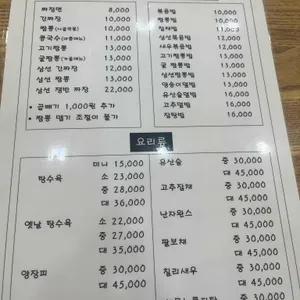 짜장면 8,000
간짜장 10,000
짬뽕 10,000
콩국수 13,000
고기짬뽕 13,000
굴짬뽕 13,000
삼선 간짜장 12,000
삼선 짬뽕 13,000
삼선 쟁반 짜장 22,000
* 곱빼기 1,000원 추가
* 짬뽕 맵기 조절이 불가
볶음밥 10,000
짬뽕밥 10,000
잡채밥 10,000
삼선볶음밥 12,000
새우볶음밥 12,000
고기짬뽕밥 13,000
굴 짬뽕밥 13,000
삼선짬뽕밥 13,000
송이덮밥 16,000
유산슬덮밥 16,000
고추덮밥 16,000
잡탕밥 16,000
요리류
탕수육 미니 15,000
소 23,000
중 28,000
대 36,000
옛날 탕수육 소 22,000
중 27,000
대 35,000
양장피 중 30,000
대 45,000
유산슬 중 30,000
대 45,000
고추잡채 중 30,000
대 45,000
난자완스 중 30,000
대 45,000
팔보채 중 30,000
대 45,000
칠리새우 중 30,000
대 45,000
중 30,000